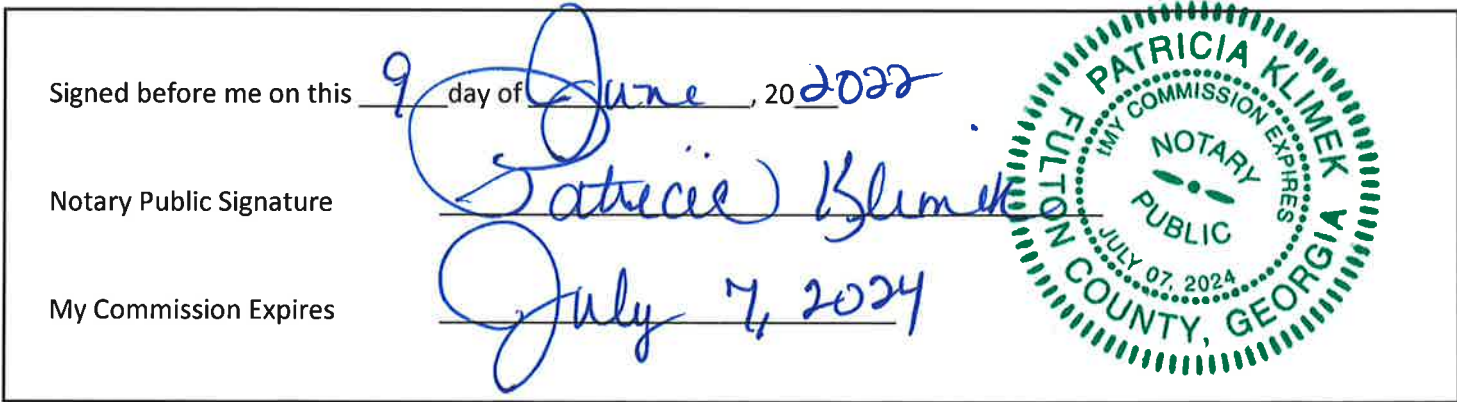 Signed before me on this 9 day of June, 20 2022
Notary Public Signature Patricia Klimek
My Commission Expires July 7, 2024
PATRICIA KLIMEK
FULTON COUNTY, GEORGIA
MY COMMISSION EXPIRES
JULY 07, 2024
NOTARY
PUBLIC